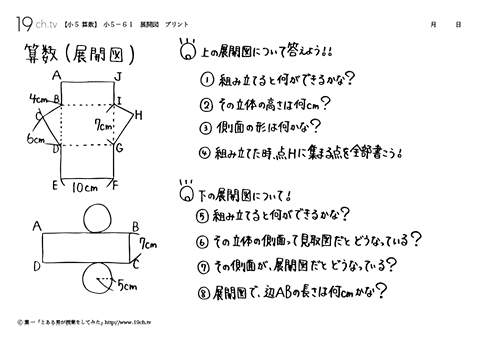 19ch.tv 【小5算数】 小5-61 展開図 プリント 月 日
算数(展開図)
A
J
4cm
B
I
C
H
7cm
6cm
D
G
E
10cm
F
上の展開図について答えよう!!
① 組み立てると何ができるかな?
② その立体の高さは何cm?
③ 側面の形は何かな?
④ 組み立てた時、点Hに集まる点を全部書こう!
A
B
7cm
D
C
5cm
下の展開図について!
⑤ 組み立てると何ができるかな?
⑥ その立体の側面って見取図だとどうなっている?
⑦ その側面が、展開図だとどうなっている?
⑧ 展開図で、辺ABの長さは何cmかな?
© 葉一「とある男が授業をしてみた」http://www.19ch.tv